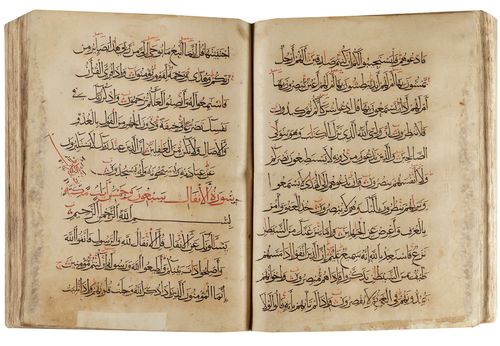 فادعوهم فليستجيبوا لكم ان كنتم صادقين الهم ارجل
يمشون بها ام لهم ايد يبطشون بها ام لهم اعين يبصرون بها
ام لهم اذان يسمعون بها قل ادعوا شركاءكم ثم كيدون
فلا تنظرون ان وليي الله الذي نزل الكتاب وهو يتولى
الصالحين والذين تدعون من دونه لا يستطيعون نصركم
ولا انفسهم ينصرون وان تدعوهم الى الهدى لا يسمعوا
وتريهم ينظرون اليك وهم لا يبصرون خذ العفو وامر
بالعرف واعرض عن الجاهلين واما ينزغنك من الشيطان
نزغ فاستعذ بالله انه سميع عليم ان الذين اتقوا اذا مسهم
طيف من الشيطان تذكروا فاذا هم مبصرون واخوانهم
يمدونهم في الغي ثم لا يقصرون واذا لم تاتهم باية قالوا لولا
اجتبيتها قل انما اتبع ما يوحى الي من ربي هذا بصائر من
ربكم وهدى ورحمة لقوم يؤمنون واذا قرئ القران
فاستمعوا له وانصتوا لعلكم ترحمون واذكر ربك في
نفسك تضرعا وخيفة ودون الجهر من القول بالغدو
والاصال ولا تكن من الغافلين ان الذين عند ربك لا يستكبرون
عن عبادته ويسبحونه وله يسجدون
سورة الانفال سبعون وخمس
بسم الله الرحمن الرحيم
يسئلونك عن الانفال قل الانفال لله والرسول فاتقوا الله
واصلحوا ذات بينكم واطيعوا الله ورسوله ان كنتم مؤمنين
انما المؤمنون الذين اذا ذكر الله وجلت قلوبهم واذا تليت